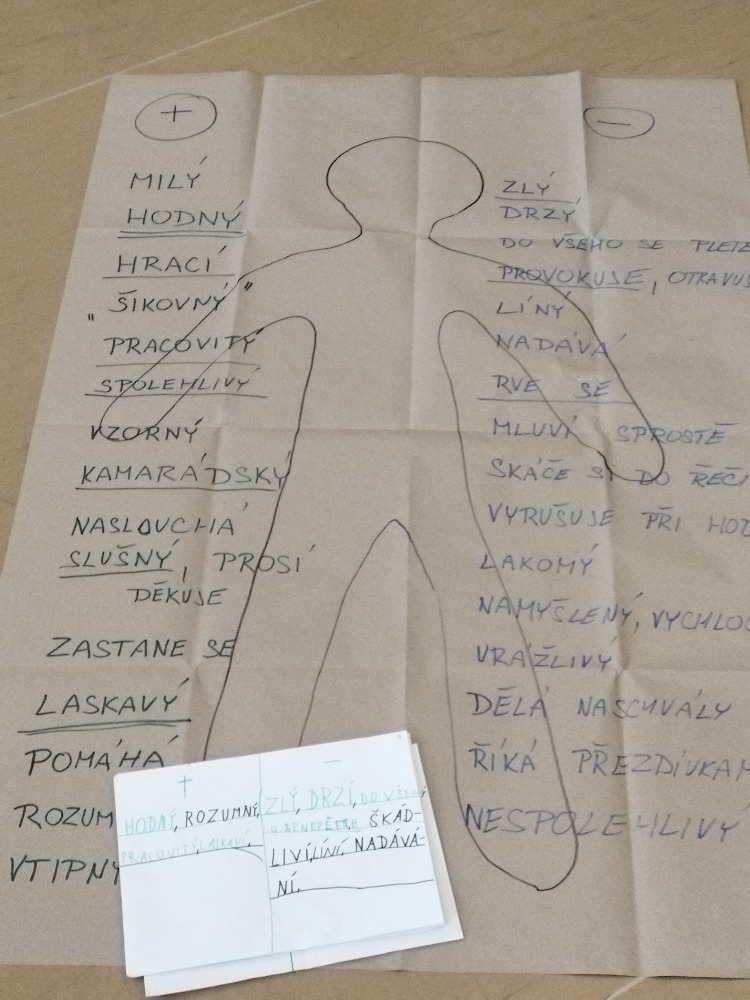 +
MILÝ
HODNÝ
HRACÍ
"ŠIKOVNÝ"
PRACOVITÝ
SPOLEHLIVÝ
VZORNÝ
KAMARÁDSKÝ
NASLOUCHÁ
SLUŠNÝ, PROSÍ
DĚKUJE
ZASTANE SE
LASKAVÝ
POMÁHÁ
ROZUM
VTIPNÝ
−
ZLÝ
DRZÝ
DO VŠEHO SE PLETE
PROVOKUJE, OTRAVUJ
LÍNÝ
NADÁVÁ
RVE SE
MLUVÍ SPROSTĚ
SKÁČE SI DO ŘEČI
VYRUŠUJE PŘI HOD
LAKOMÝ
NAMYŠLENÝ, VYCHLOU
VRAŽLIVÝ
DĚLÁ NASCHVÁLY
ŘÍKÁ PŘEZDÍVKAM
NESPOLEHLIVÝ
+
HODNÝ, ROZUMNÝ,
PRACOVITÝ, LASKAVÍ,
−
ZLÝ, DRZÍ, DO VŠEHO
ŠKÁD-
LIVÍ, LÍNÍ, NADÁVÁ-
NÍ,